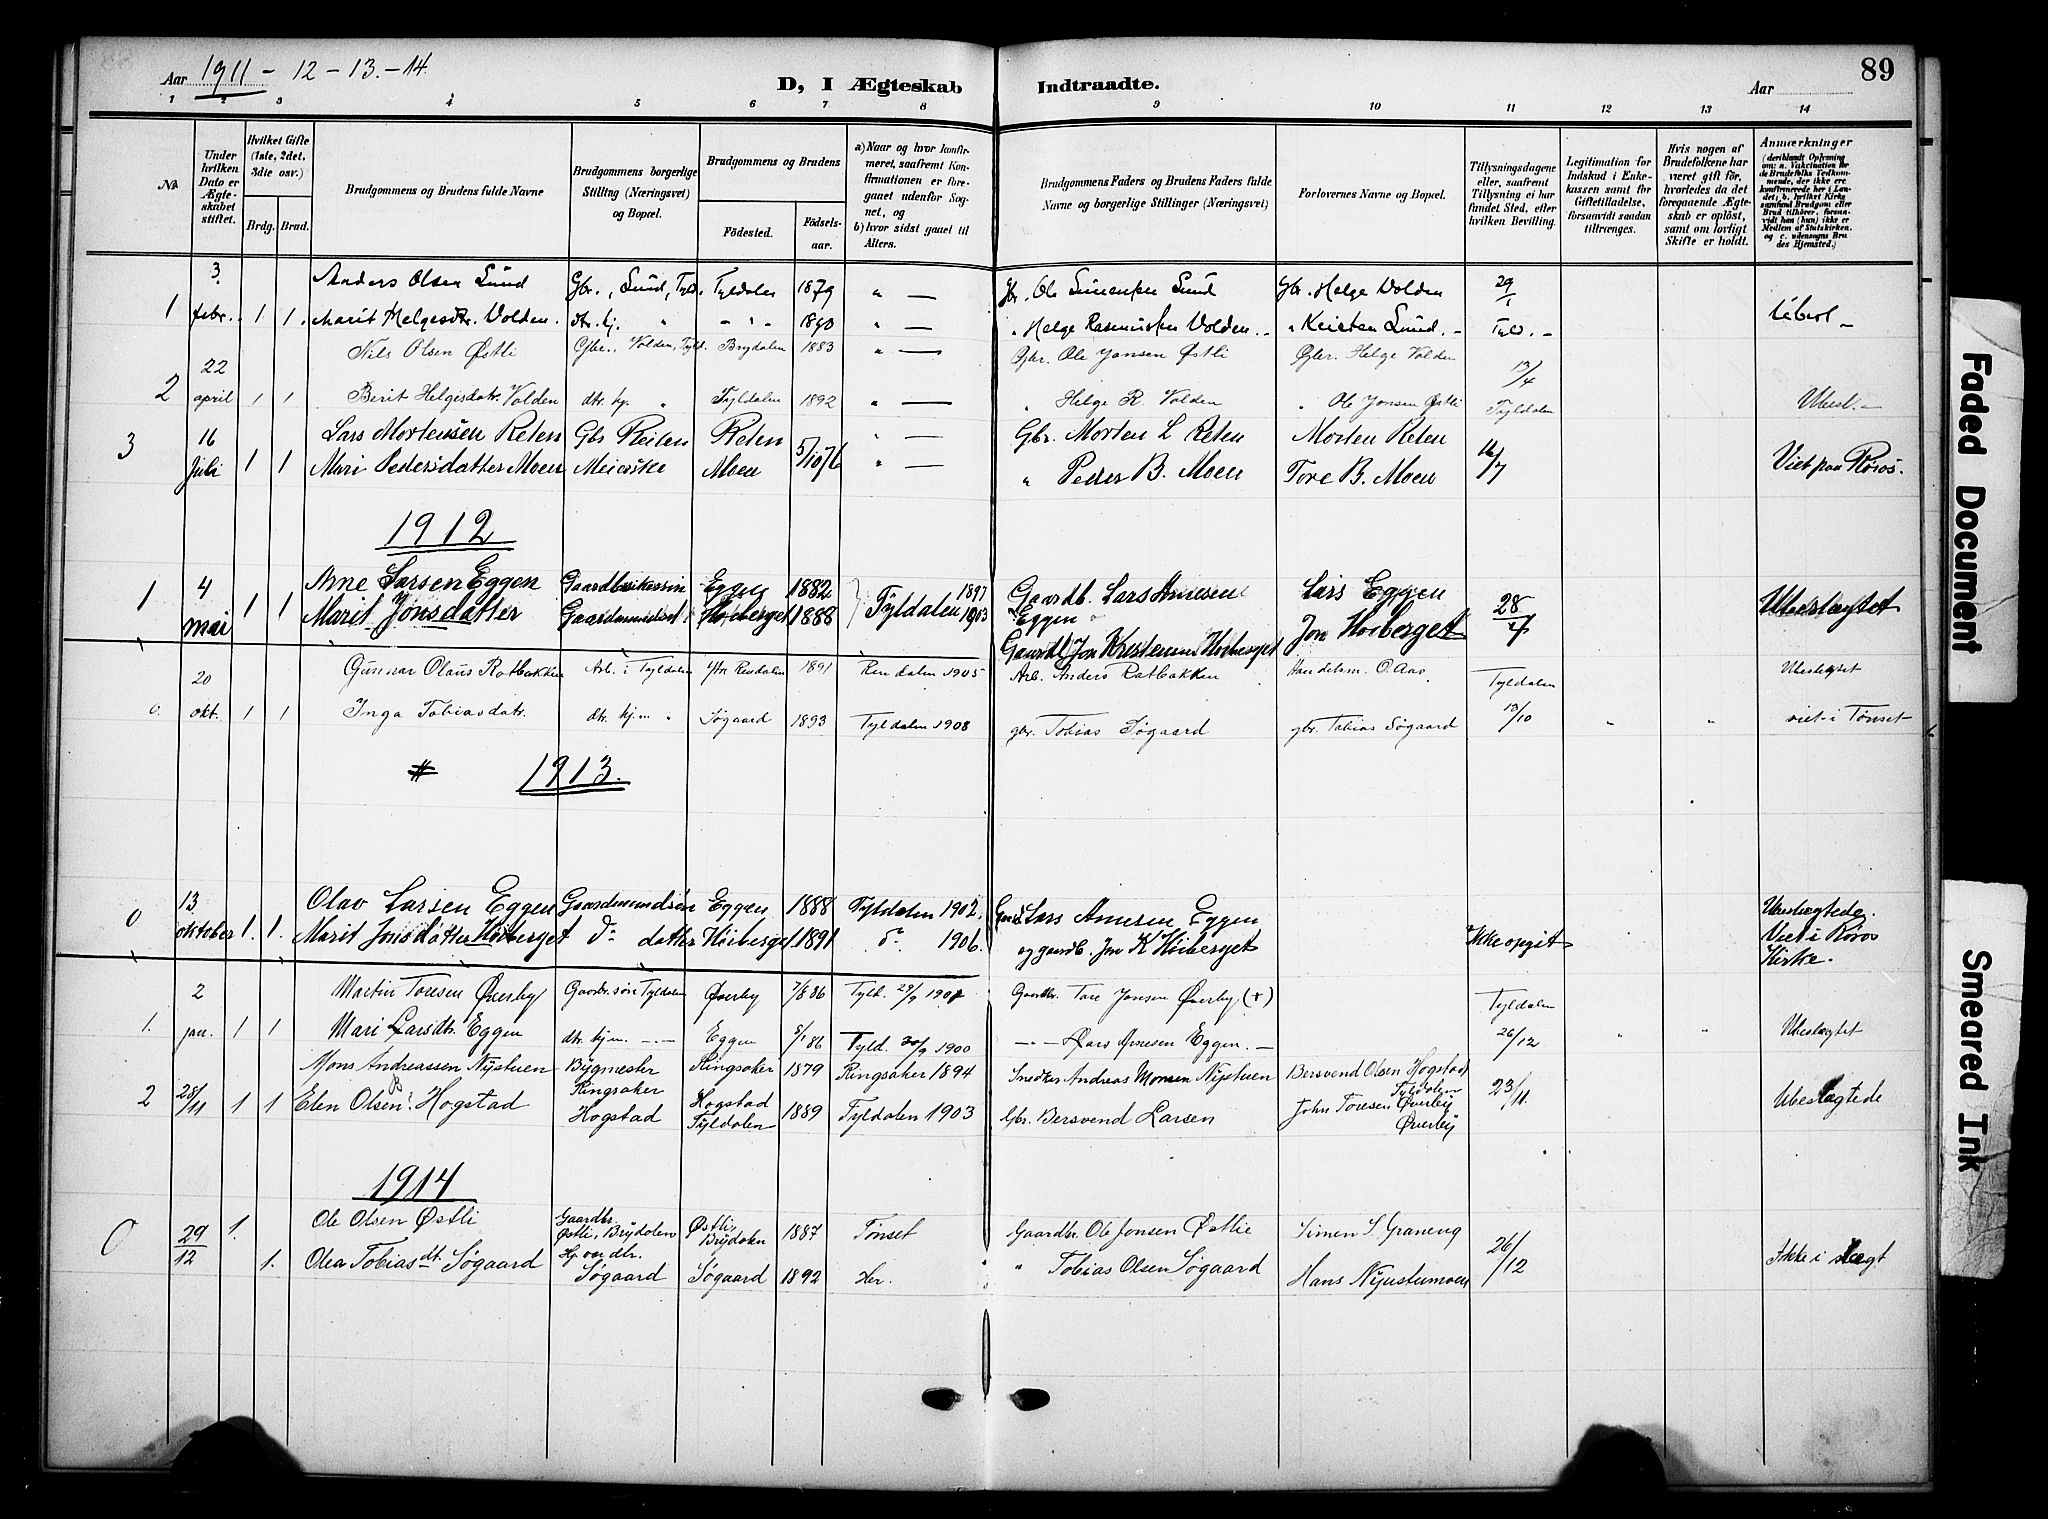 Aar 1911 - 12 - 13. - 14.
D, I Ægteskab Indtraadte.
Aar
89
1 2 3 4 5 6 7 8 9 10 11 12 13 14
№
Under hvilken Dato er Ægteskabet stiftet.
Hvilket Gifte (1ste, 2det, 3die osv.)
Brdg. Brud.
Brudgommens og Brudens fulde Navne
Brudgommens borgerlige Stilling (Næringsvei) og Bopæl.
Brudgommens og Brudens
Fødested.
Fødselsaar.
a) Naar og hvor konfirmeret, saafremt Konfirmationen er foregaaet udenfor Sognet, og
b) hvor sidst gaaet til Alters.
Brudgommens Faders og Brudens Faders fulde Navne og borgerlige Stillinger (Næringsvei)
Forlovernes Navne og Bopæl.
Tillysningsdagene eller, saafremt Tillysning ei har fundet Sted, efter hvilken Bevilling.
Legitimation for Indskud i Enkekassen samt for Giftetilladelse, forsaavidt saadan tiltrænges.
Hvis nogen af Brudefolkene har været gift før, hvorledes da det foregaaende Ægteskab er opløst, samt om lovligt Skifte er holdt.
Anmærkninger
(deriblandt Oplysning om: a. Vakcination for de Brudefolks Vedkommende, der ikke ere konfirmerede her i Landet; b. hvilket Kirkesamfund Brudgom eller Brud tilhører, forsaavidt han (hun) ikke er Medlem af Statskirken, og c. udensogns Brudes Hjemsted.)
3. Anders Olsen Lund Gbr., Lund, Tyld. Tyldalen 1879 " — Gbr. Ole Simensen Lund Gbr. Helge Volden 29/1
1 febr. 1 1. Marit Helgesdtr. Volden. dtr. hj. " - " - 1890 " — " Helge Rasmussen Volden. - " Kristen Lund. - Tyld. - Ubesl. -
22 Nils Olsen Østli Gbr., Volden, Tyld. Brydalen 1883 " — Gbr. Ole Jonsen Østli Gbr. Helge Volden 13/4
2 april 1 1 Berit Helgesdatr. Volden dtr. hj. " Tyldalen 1892 " — " Helge R. Volden " Ole Jonsen Østli Tyldalen Ubesl. -
3 16 Lars Mortensen Reten Gbr Reiten Reten " — Gbr. Morten L Reten Morten Reten 16/7
Juli 1 1 Mari Pedersdatter Moen Meierske Moen 5/10 76 " — " Peder B. Moen Tore B. Moen Viet paa Røros.
1912
1 4 Arne Larsen Eggen Eggen 1882 1897 Gaardb. Lars Arnesen Lars Eggen 28/4
mai 1 1 Marit Jonsdatter Høiberget 1888 Tyldalen 1903 Eggen Jon Høiberget Ubeslægtet
Gaardb. Jon Kristensen Høiberget
20 Gunnar Olaus Ratbakken Arb. i Tyldalen Ytre Rendalen 1891 Rendalen 1905 Arb. Anders Ratbakken Handelsm. O. Aas Tyldalen Ubeslægtet
0. okt. 1 1 Inga Tobiasdatr. dtr. hj. - " Søgaard 1893 Tyldalen 1908 gbr. Tobias Søgaard gbr. Tobias Søgaard 13/10 " " viet i Tønset
# 1913.
0 13 Olav Larsen Eggen Gaardmandssøn Eggen 1888 Tyldalen 1902. Gaardb. Lars Arnesen Eggen Ubeslægtede.
oktober 1. 1. Marit Jonsdatter Høiberget do datter Høiberget 1891 do 1906. og gaardb. Jon K Høiberget Ikke opgit Viet i Røros Kirke.
2 Martin Toresen Øverby Gaardbr. søn Tyldalen Øverby 7/8 86 Gaardbr. Tore Jonsen Øverby (+) Tyldalen
1. jan. 1 1 Mari Larsdtr. Eggen dtr. hjm. - - Eggen 5/1 86 Tyld. 30/9 1900 - - Lars Arnesen Eggen. - 26/12 " " Ubeslægtet
Mons Andreassen Nystuen Bygmester Ringsaker Ringsaker 1879 Ringsaker 1894 Snedker Andreas Monsen Nystuen Bersvend Olsen Hogstad Tyldalen
2 28/11 1 1 Elen Olsen Hogstad Hogstad Hogstad Tyldalen 1889 Tyldalen 1903 Gbr. Bersvend Larsen John Toresen Øverby Øverby 23/11. Ubeslægtede
1914
0 29/12 1. Ole Olsen Østli Gaardbr. Østli, Brydalen Østli, Brydalen 1887 Tønset Gaardbr Ole Jonsen Østlie Simen S. Graneng 26/12 Ikke i slægt
1. Olea Tobiasdt. Søgaard Hj vær dtr. Søgaard Søgaard 1892 Her " Tobias Olsen Søgaard Hans Nystumoen
Faded Document
Smeared Ink